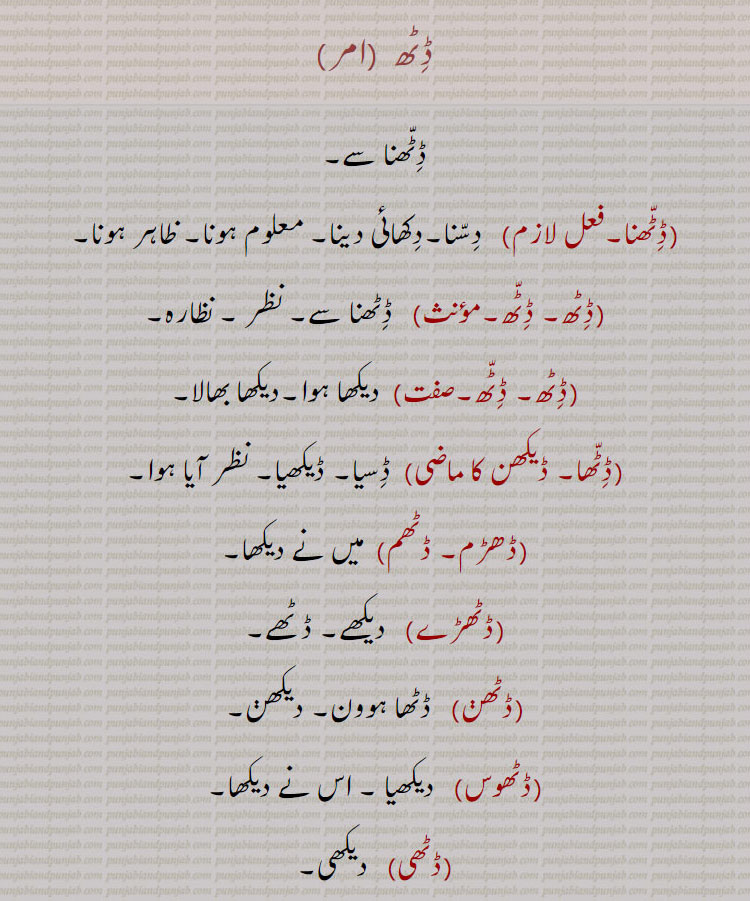 ڈِٹھ (امر)
ڈِٹّھنا سے۔
(ڈِٹّھنا۔فعل لازم) دِسّنا۔دِکھائی دینا۔ معلوم ہونا۔ ظاہر ہونا۔
(ڈِٹھ۔ ڈِٹّھ۔مؤنث) ڈِٹھنا سے۔ نظر ۔ نظارہ۔
(ڈِٹھ۔ ڈِٹّھ۔صفت) دیکھا ہوا۔دیکھا بھالا۔
(ڈِٹّھا۔ ڈیکھن کا ماضی) ڈِسیا۔ ڈیکھیا۔ نظر آیا ہوا۔
(ڈھڑم۔ ڈٹھم) میں نے دیکھا۔
(ڈٹھڑے) دیکھے۔ ڈٹھے۔
(ڈٹھن) ڈٹھا ہوون۔ دیکھن۔
(ڈٹھوس) دیکھیا ۔ اس نے دیکھا۔
(ڈٹھی) دیکھی۔